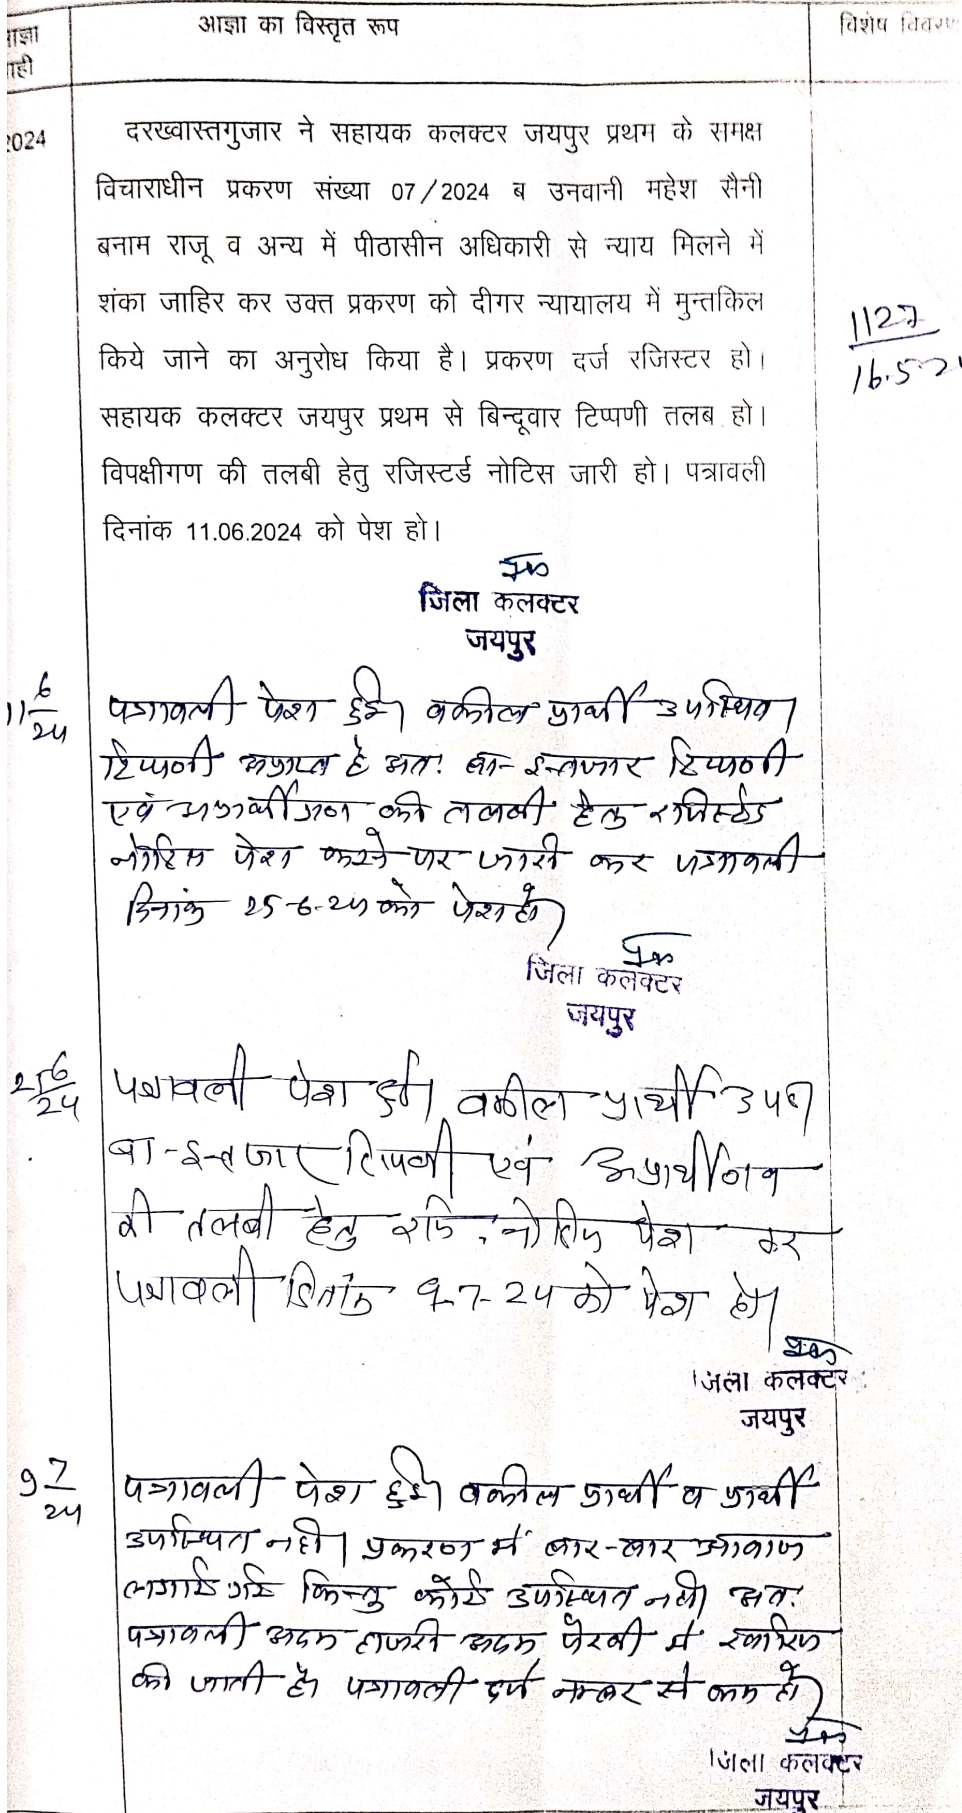 आज्ञा का विस्तृत रूप
विशेष विवरण
ाज्ञा
ाही
2024
दरख्वास्तगुजार ने सहायक कलक्टर जयपुर प्रथम के समक्ष
विचाराधीन प्रकरण संख्या 07/2024 ब उनवानी महेश सैनी
बनाम राजू व अन्य में पीठासीन अधिकारी से न्याय मिलने में
शंका जाहिर कर उक्त प्रकरण को दीगर न्यायालय में मुन्तकिल
किये जाने का अनुरोध किया है। प्रकरण दर्ज रजिस्टर हो।
सहायक कलक्टर जयपुर प्रथम से बिन्दूवार टिप्पणी तलब हो।
विपक्षीगण की तलबी हेतु रजिस्टर्ड नोटिस जारी हो। पत्रावली
दिनांक 11.06.2024 को पेश हो।
16.5.2
जिला कलक्टर
जयपुर
11 6/24
पत्रावली पेश हुई। वकील प्रार्थी उपस्थित।
टिप्पणी अप्राप्त है अतः बा-इन्तजार टिप्पणी
एवं अप्रार्थीगण की तलबी हेतु रजिस्टर्ड
नोटिस पेश करने पर जारी कर पत्रावली
दिनांक 25-6-24 को पेश हो।
जिला कलक्टर
जयपुर
25 6/24
पत्रावली पेश हुई। वकील प्रार्थी उप०।
बा-इन्तजार टिप्पणी एवं अप्रार्थीगण
की तलबी हेतु रजि. नोटिस पेश कर
पत्रावली दिनांक 9-7-24 को पेश हो।
जिला कलक्टर
जयपुर
9 7/24
पत्रावली पेश हुई। वकील प्रार्थी व प्रार्थी
उपस्थित नही। प्रकरण में बार-बार आवाज
लगाई गई किन्तु कोई उपस्थित नही। अतः
पत्रावली अदम हाजरी अदम पैरवी में खारिज
की जाती है। पत्रावली दर्ज नम्बर से कम हो।
जिला कलक्टर
जयपुर